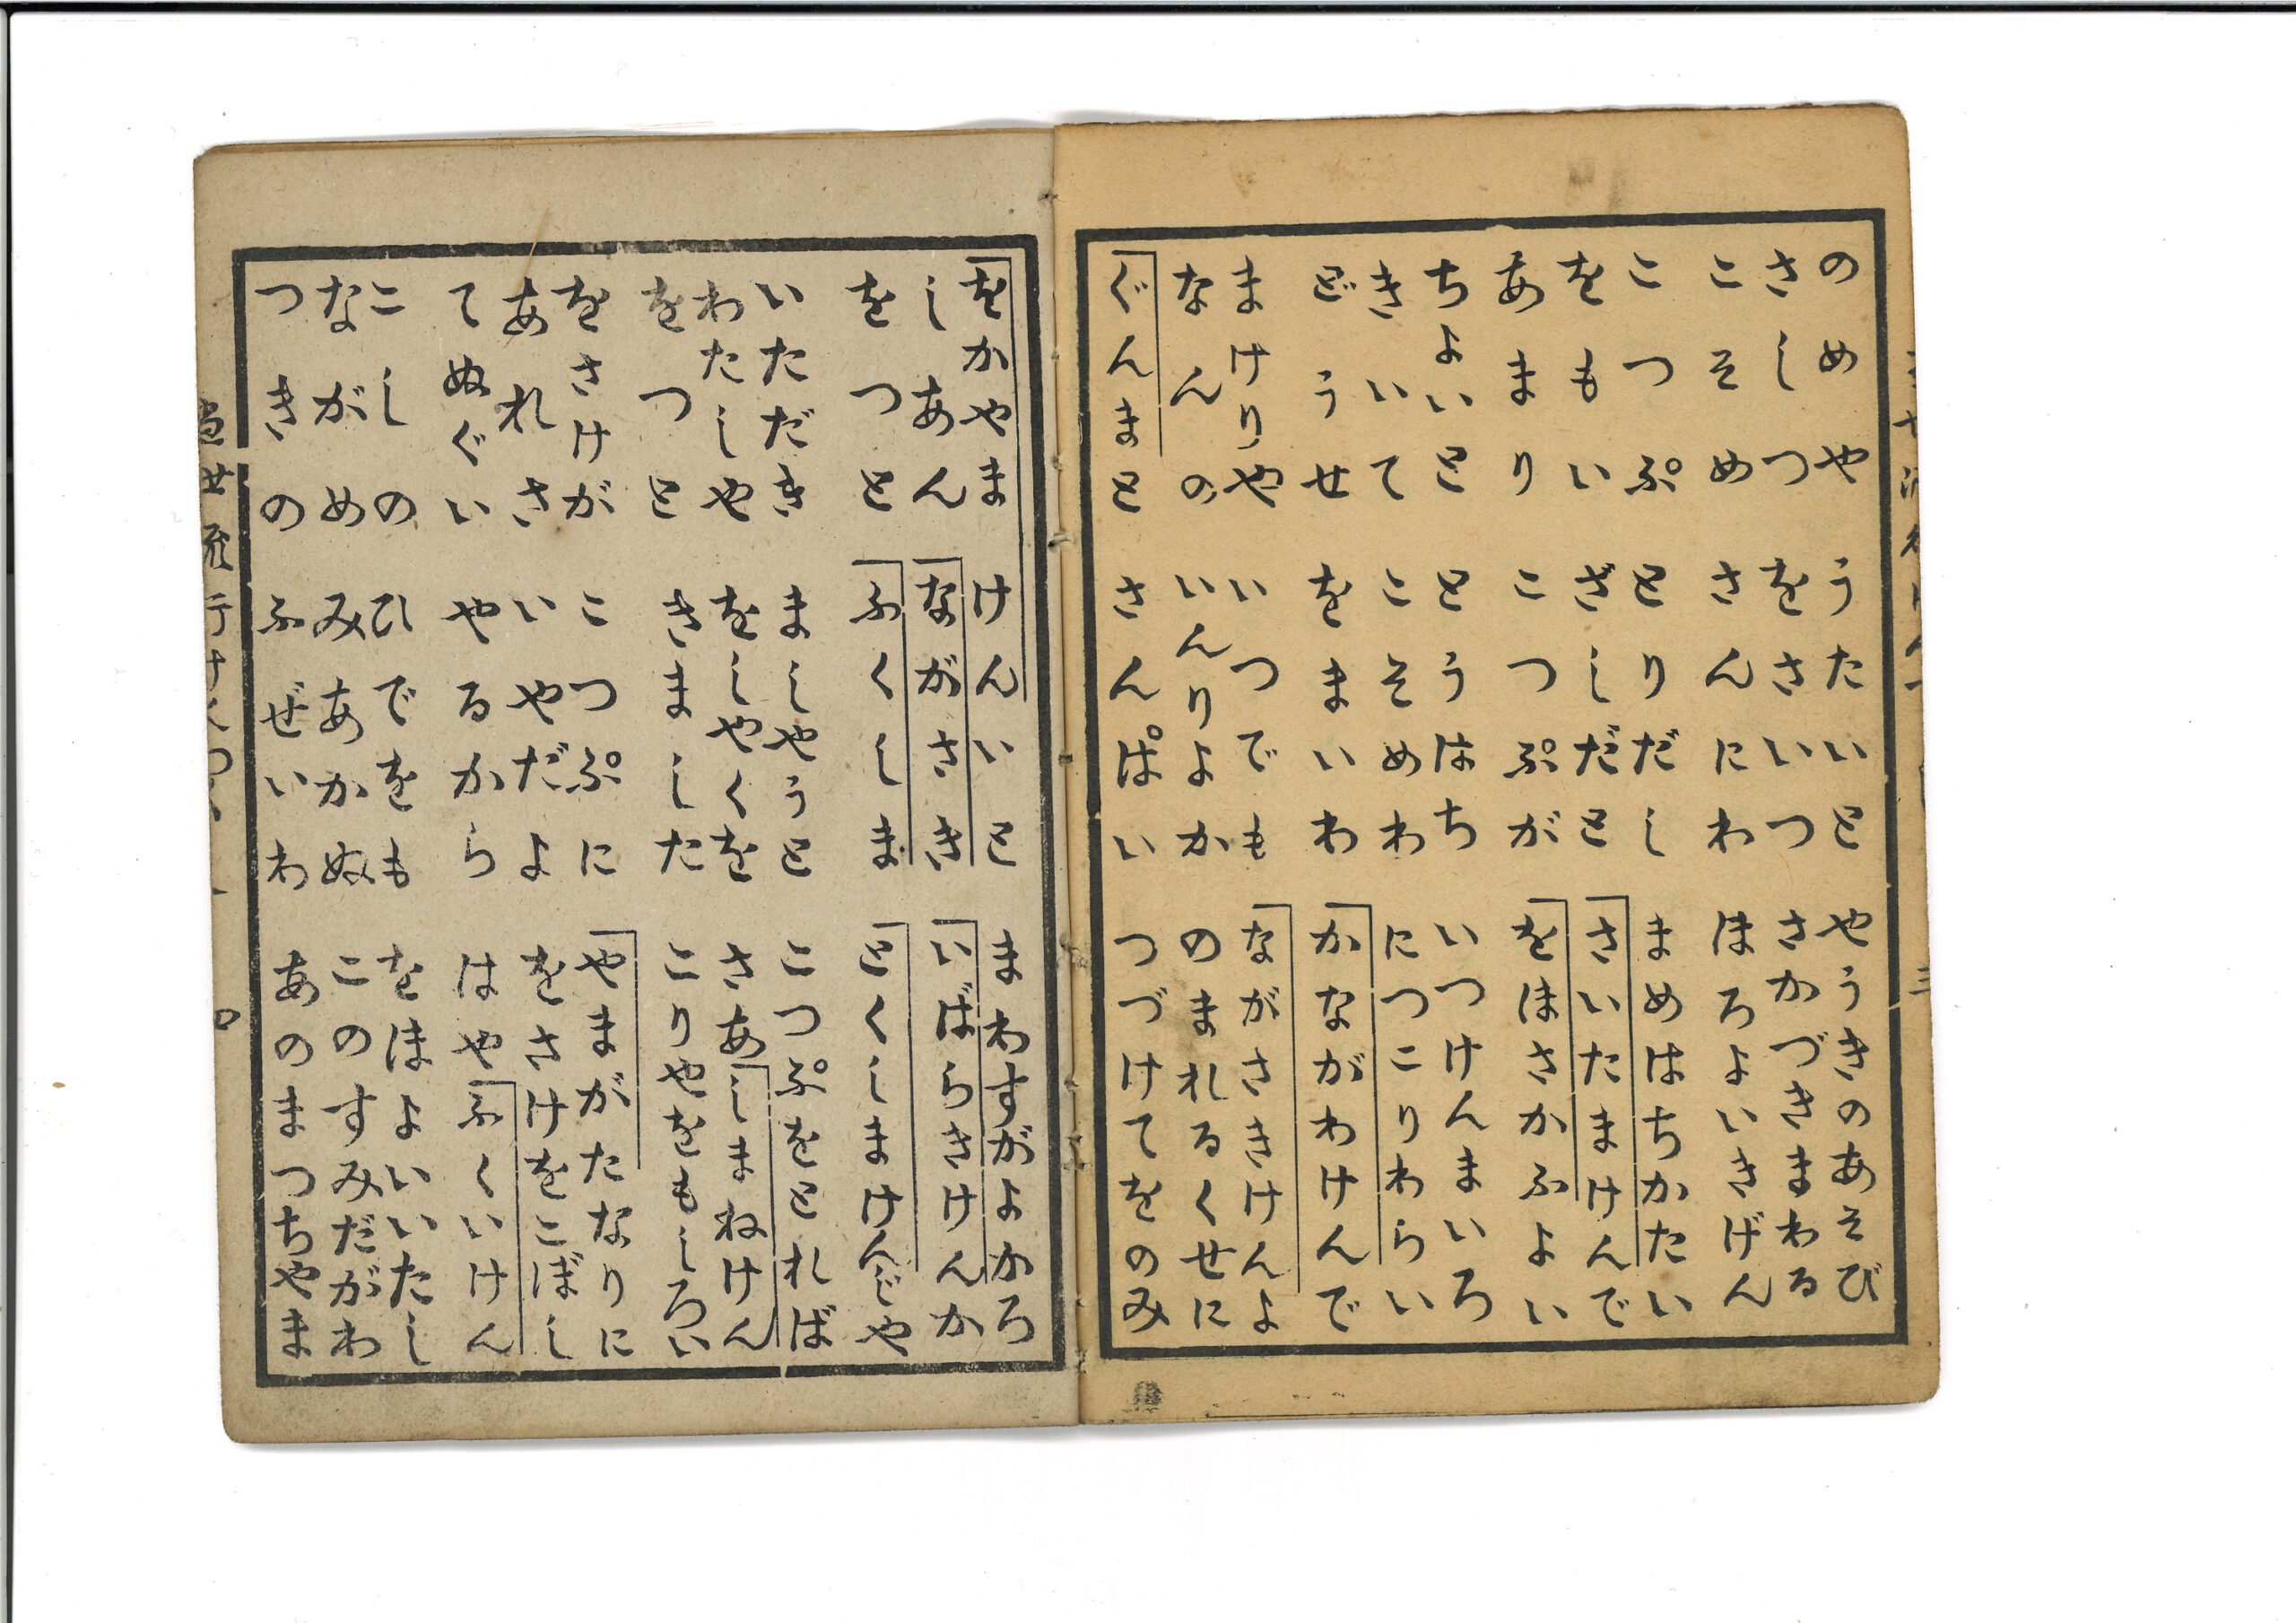 のめや うたいと やうきのあそび
さしつ をさいつ さかづきまわる
こそめ さんにわ ほろよいきげん
こつぷ とりだし まめはちかたい
をもい ざしだと さいたまけんで
あまり こつぷが をほさかふよい
ちよいと とうはち いつけんまいろ
きいて こそめわ につこりわらい
どうせ をまいわ かながわけんで
まけりや いつでも ながさきけんよ
なんの いんりよか のまれるくせに
ぐんまと さんぱい つづけてをのみ
をかやま けんいと まわすがよかろ
しあん ながさき いばらきけんか
をつと ふくしま とくしまけんじや
いただき ましやうと こつぷをとれば
わたしや をしやくを さあしまねけん
をつと きました こりやをもしろい
をさけが こつぷに やまがたなりに
あれさ いやだよ をさけをこぼし
てぬぐい やるから はやふくいけん
こしの ひでをも をほよいいたし
ながめ みあかぬ このすみだがわ
つきの ふぜいわ あのまつちやま